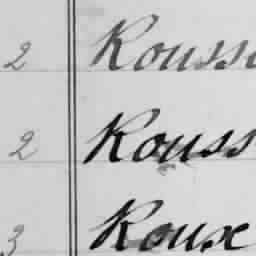 2 Rousse
2 Rouss
3 Roux